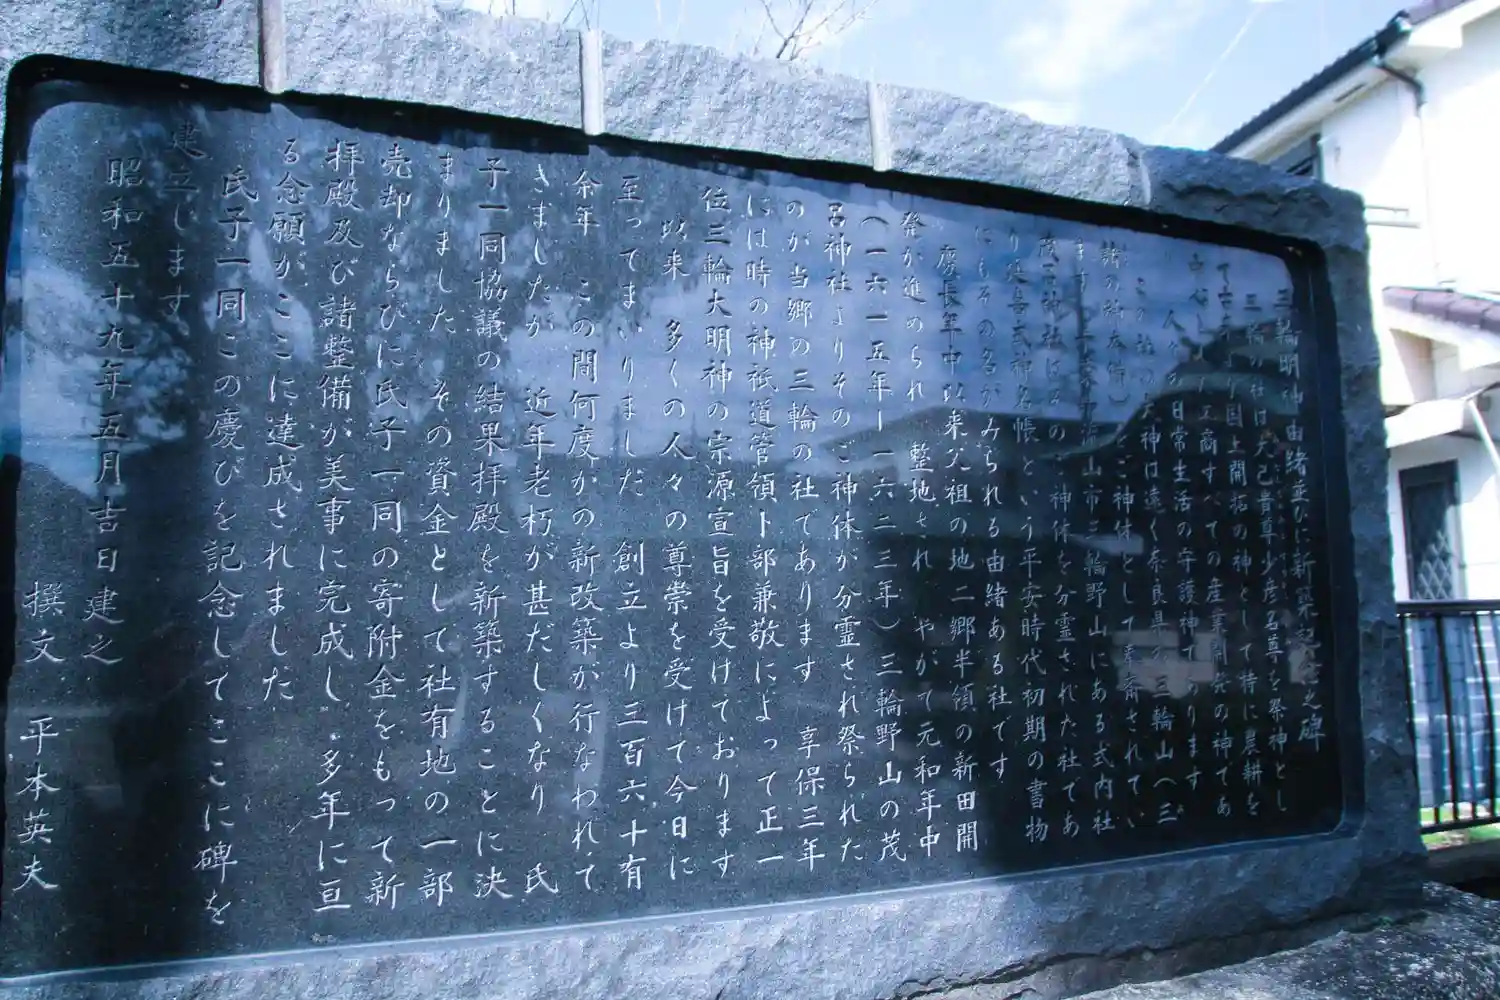 三輪明神由緒並びに新築記念之碑
三輪の社は大己貴尊少彦名尊を祭神とし
て古来より国土開拓の神として特に農耕を
中心とし 工商すべての産業開発の神であ
り 人々の日常生活の守護神であります
この社の 大神は遠く奈良県の三輪山(三
諸の神奈備)をご神体として奉斎されてい
ます 流山市三輪野山にある式内社
茂呂神社はそのご神体を分霊された社であ
り延喜式神名帳という平安時代初期の書物
にもその名がみられる由緒ある社です
慶長年中以来父祖の地二郷半領の新田開
発が進められ 整地され やがて元和年中
(一六一五年ー一六二三年)三輪野山の茂
呂神社よりそのご神体が分霊され祭られた
のが当郷の三輪の社であります 享保三年
には時の神祇道管領卜部兼敬によって正一
位三輪大明神の宗源宣旨を受けております
以来 多くの人々の尊崇を受けて今日に
至ってまいりました 創立より三百六十有
余年 この間何度かの新改築が行なわれて
きましたが 近年老朽が甚だしくなり 氏
子一同協議の結果拝殿を新築することに決
まりました その資金として社有地の一部
売却ならびに氏子一同の寄附金をもって新
拝殿及び諸整備が美事に完成し 多年に亘
る念願がここに達成されました
氏子一同この慶びを記念してここに碑を
建立します
昭和五十九年五月吉日 建之
撰文 平本英夫